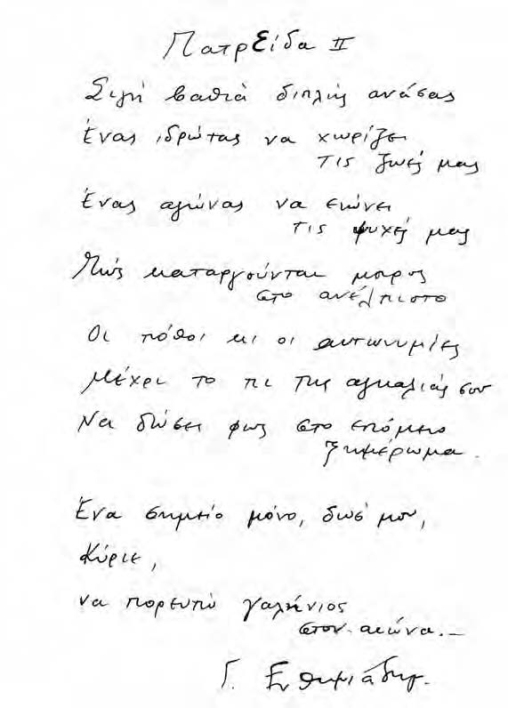 ΠατρΕίδα ΙΙ
Σιγή βαθιά διπλής ανάσας
Ένας ιδρώτας να χωρίζει
τις ζωές μας
Ένας αγώνας να ενώνει
τις ψυχές μας
Πώς καταργούνται μπρος
στο ανέλπιστο
Οι πόθοι κι οι αντωνυμίες
Μέχρι το πι της αγκαλιάς σου
Να δώσει φως στο επόμενο
ξημέρωμα.
Ένα σημείο μόνο, δωσ' μου,
Κύριε,
να πορευτώ γαλήνιος
στον αιώνα.–
Γ. Ευθυμιάδης.